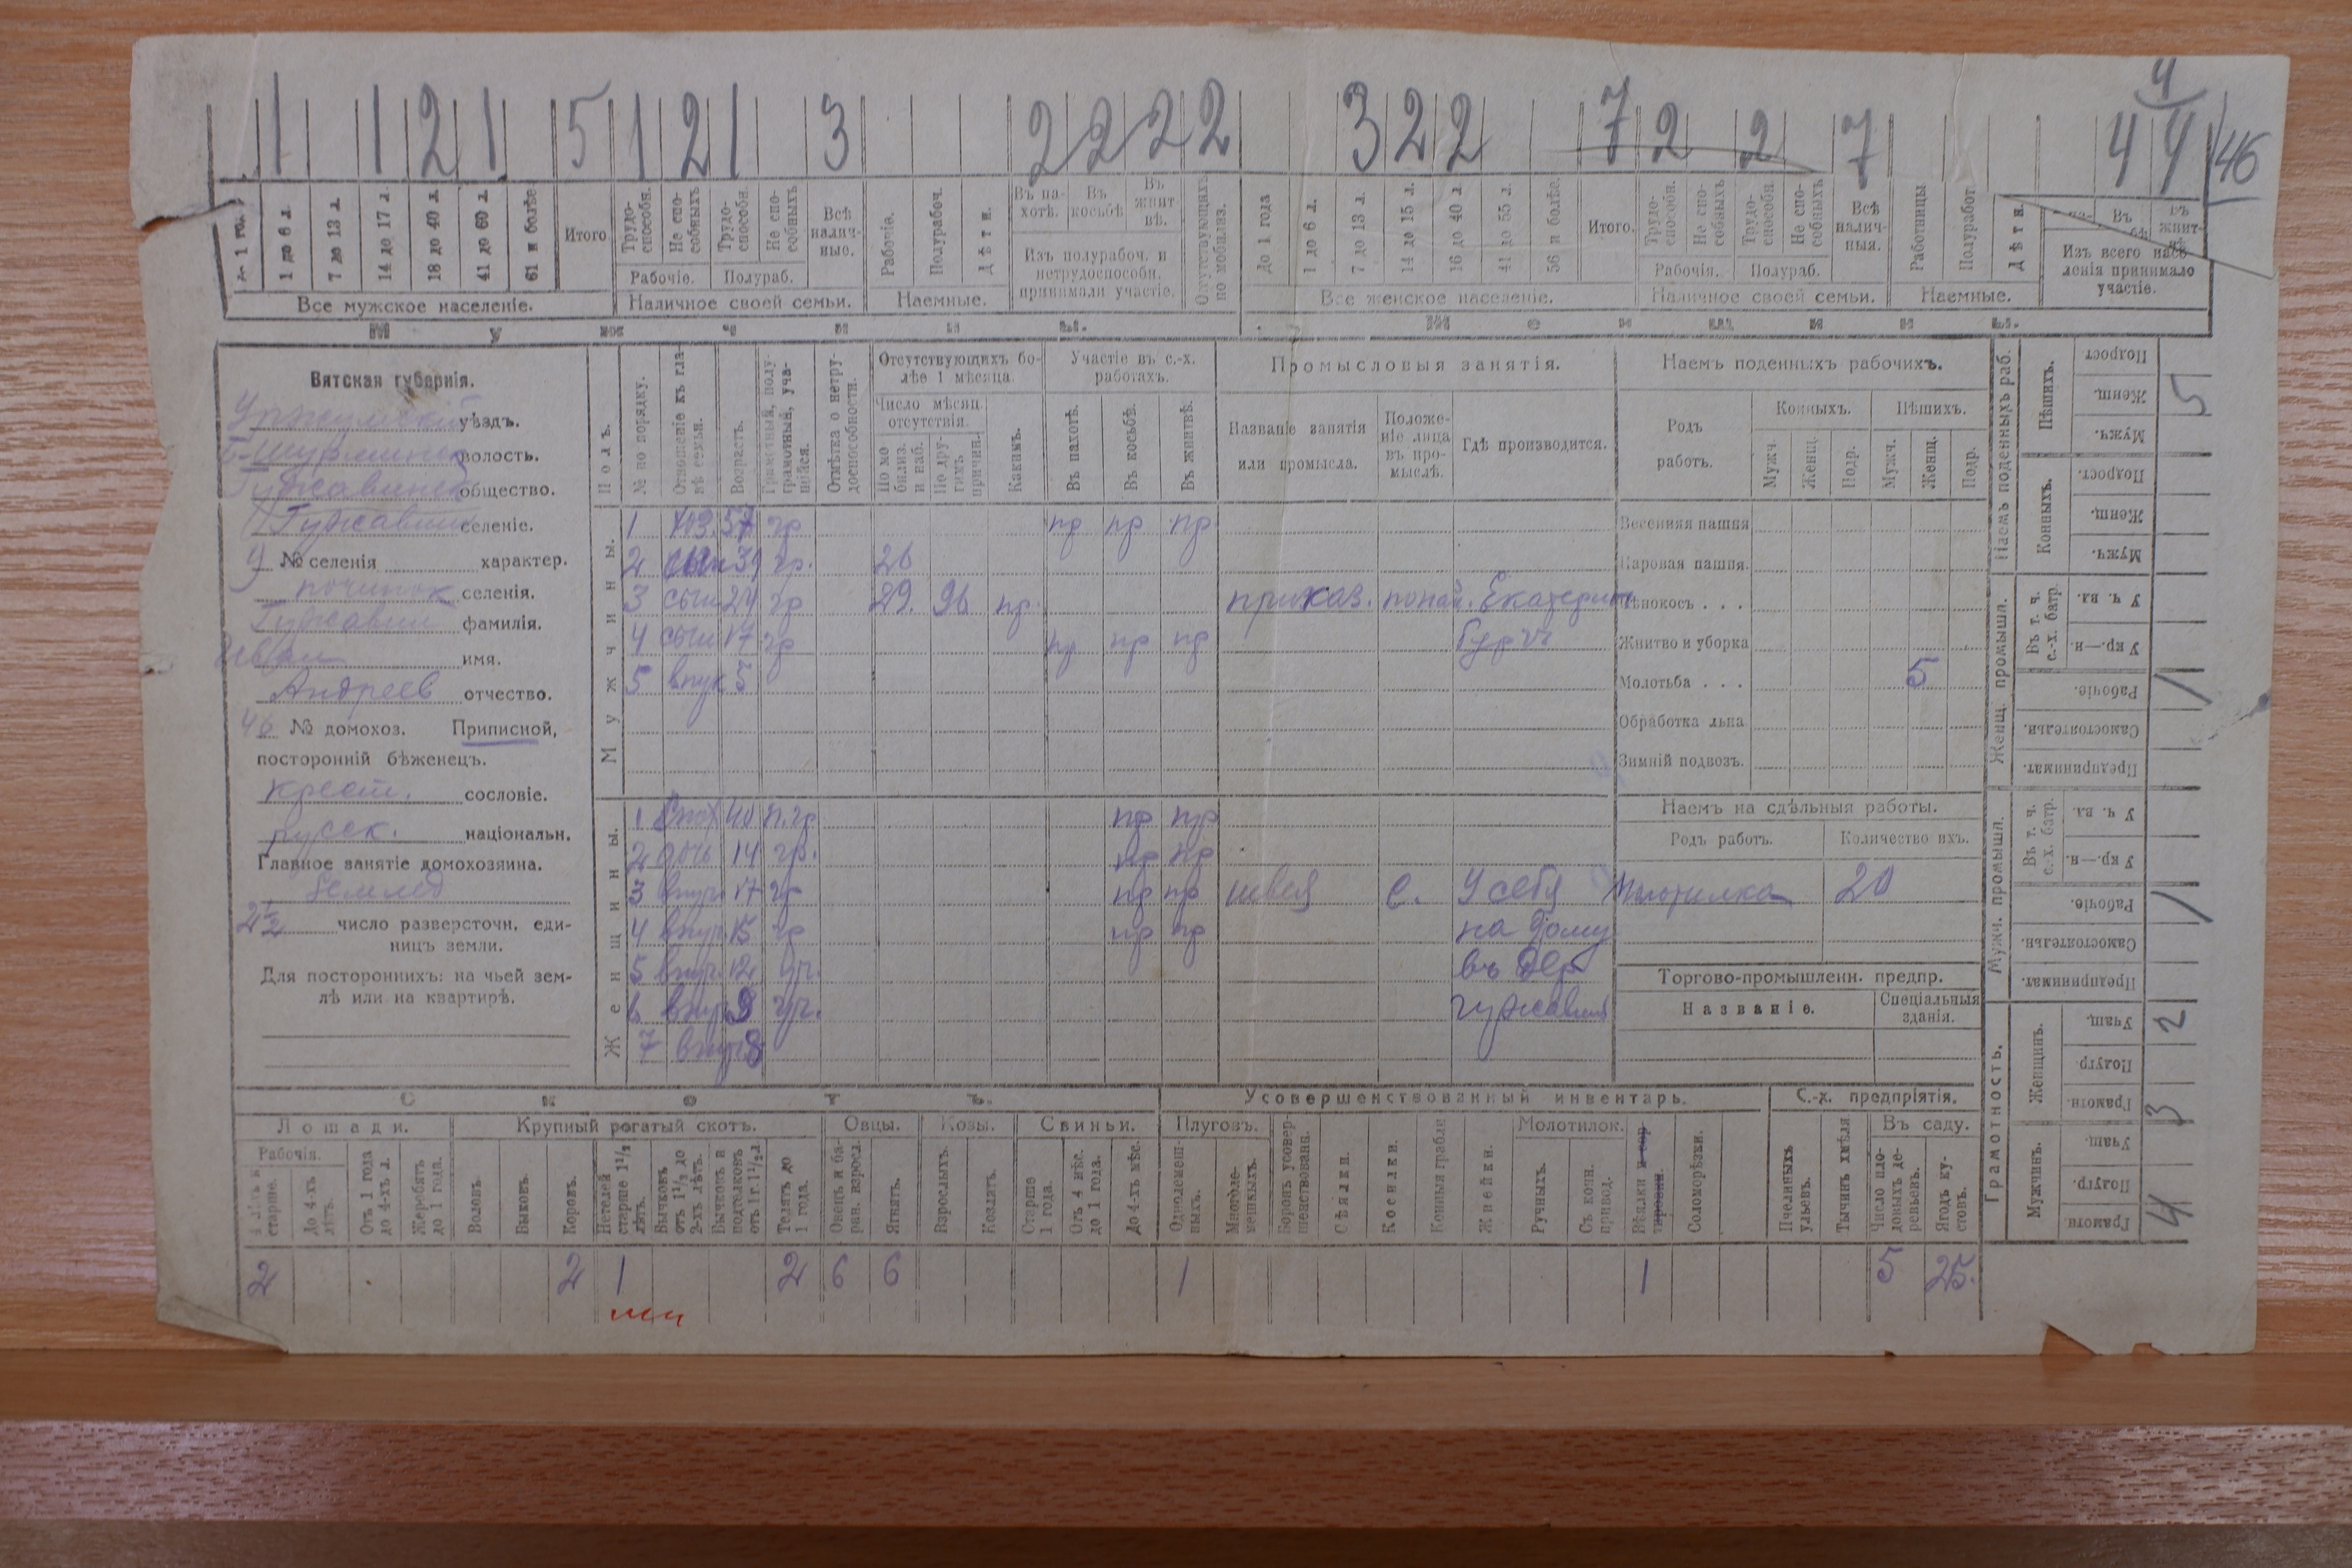 1 1 2 1 5 1 2 1 3 2 2 2 2 3 2 2 7 2 2 7 4 4 4 46
1 до 6 л. 7 до 13 л. 14 до 17 л. 18 до 40 л. 41 до 60 л. 61 и болѣе Итого Трудо-способн. Не спо-собныхъ Трудо-способн. Не спо-собныхъ Всѣ налич-ные. Рабочіе. Полурабоч. Дѣти. Въ па-хотѣ. Въ косьбѣ Въ жнит-вѣ. Отсутствующихъ по мобилиз. До 1 года 1 до 6 л. 7 до 13 л. 14 до 15 л. 16 до 40 л. 41 до 55 л. 56 и болѣе. Итого. Трудо-способн. Не спо-собныхъ Трудо-способн. Не спо-собныхъ Всѣ налич-ныя. Работницы Полуработ. Дѣти.
Рабочіе. Полураб. Изъ полурабоч. и нетрудоспособн. принимали участіе. Рабочія. Полураб. Изъ всего насе-ленія принимало участіе.
Все мужское населеніе. Наличное своей семьи. Наемные. Все женское населеніе. Наличное своей семьи. Наемные.
Вятская губернія.
Уржумскій уѣздъ.
волость.
общество.
селеніе.
№ селенія характер.
починок селенія.
Гужавин фамилія.
Иван имя.
Андреев отчество.
46 № домохоз. Приписной,
посторонній бѣженецъ.
крест. сословіе.
русск. національн.
Главное занятіе домохозяина.
землед
2 1/2 число разверсточн. еди-
ницъ земли.
Для постороннихъ: на чьей зем-
лѣ или на квартирѣ.
Полъ. № по порядку. Отношеніе къ гла-вѣ семьи. Возрастъ. Грамотный, полу-грамотный, уча-щійся. Отмѣтка о нетру-доспособности.
Отсутствующихъ бо-лѣе 1 мѣсяца.
Число мѣсяц. отсутствія.
По мо-билиз. и наб. По дру-гимъ причин. Какимъ.
Участіе въ с.-х. работахъ.
Въ пахотѣ. Въ косьбѣ. Въ жнитвѣ.
Промысловыя занятія.
Названіе занятія или промысла. Положе-ніе лица въ про-мыслѣ. Гдѣ производится.
Мужчины.
1 хоз. 57 гр пр пр пр
2 сын гр. 26
3 сын 24 гр 29. 96 пр. приказ.
4 сын 17 гр пр пр пр
5 внук 5
Женщины.
1 40 п.гр пр пр
2 дочь 14 гр. пр пр
3 внуч. 17 гр пр пр швея С. У себя
4 внуч. 15 гр пр пр на дому
5 внуч. 12 уч. въ дер
6 внуч. 9 уч. гужавин
7 внуч. 8
Наемъ поденныхъ рабочихъ.
Родъ работъ. Конныхъ. Пѣшихъ.
Мужч. Женщ. Подр. Мужч. Женщ. Подр.
Весенняя пашня
Паровая пашня.
Сѣнокосъ . . .
Жнитво и уборка
Молотьба . . . 5
Обработка льна
Зимній подвозъ.
Наемъ на сдѣльныя работы.
Родъ работъ. Количество ихъ.
20
Торгово-промышленн. предпр.
Названіе. Спеціальныя зданія.
Наемъ поденныхъ раб.
Пѣшихъ. Подрост Женщ. Мужч. 5
Конныхъ. Подрост. Женщ. Мужч.
Женщ. промышл.
Въ т. ч. с.-х. батр. У ч. вл. У кр.—н.
Рабочіе. 1
Самостоятельн.
Предпринимат.
Мужч. промышл.
Въ т. ч. с. х. батр. У ч. вл. У кр.—н.
Рабочіе. 1
Самостоятельн.
Предпринимат.
Грамотность.
Женщинъ. Учащ. 2 Полугр. Грамотн. 3
Мужчинъ. Учащ. Полугр. Грамотн 4
Скотъ. Усовершенствованный инвентарь. С.-х. предпріятія.
Лошади. Крупный рогатый скотъ. Овцы. Козы. Свиньи. Плуговъ. Молотилок. Въ саду.
Рабочія.
До 4-хъ лѣтъ. Отъ 1 года до 4-хъ л. Жеребятъ до 1 года. Воловъ. Быковъ. Коровъ. Нетелей старше 1½ лѣтъ. Бычковъ отъ 1½ до 2-хъ лѣтъ. Бычковъ и подтелковъ отъ 1г. 1½ л Телятъ до 1 года. Овецъ и ба-ран. взросл. Ягнятъ. Взрослыхъ. Козлятъ. Старше 1 года. Отъ 4 мѣс. до 1 года. До 4-хъ мѣс. Одноле­меш-ныхъ. Многоле-мешныхъ. Боронъ усовер-шенствованн. Сѣялки. Косилки. Конныя грабли Жнейки. Ручныхъ. Съ конн. привод. Вѣялки и сор-тировки. Соломорѣзки. Пчелиныхъ ульевъ. Тычинъ хмѣля Число пло-довыхъ де-ревьевъ. Ягодъ ку-стовъ.
2 2 1 2 6 6 1 1 5 25.